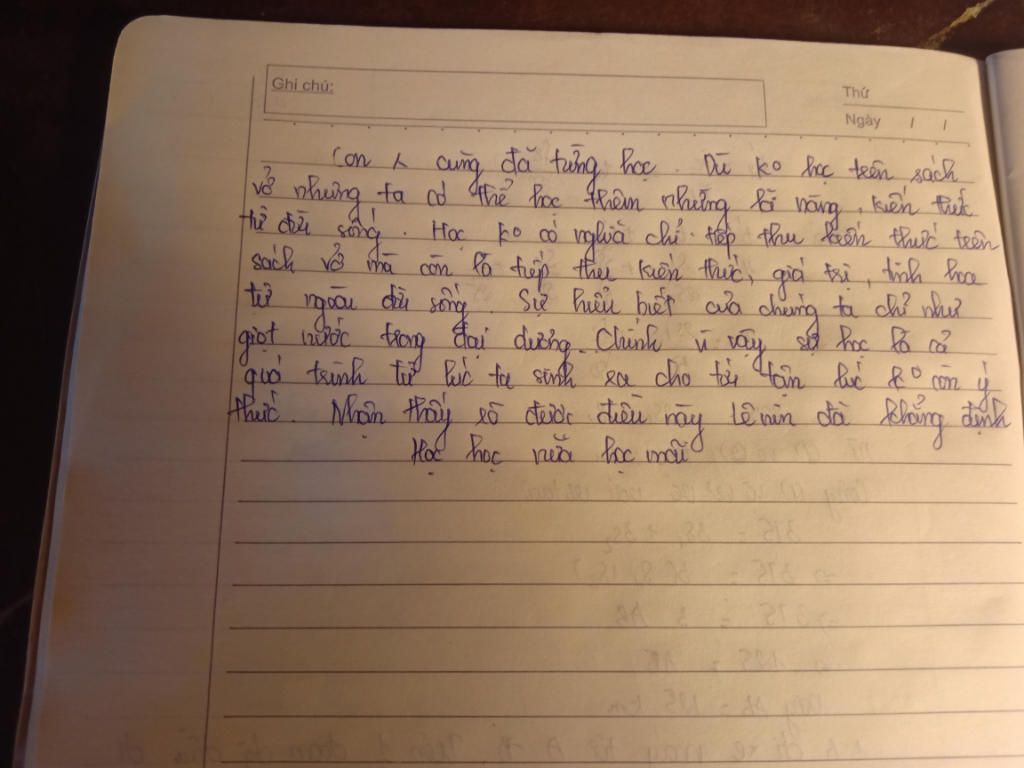 Ghi chú:
Thứ
Ngày / /
Con λ cũng đã từng học. Dù ko học trên sách
vở nhưng ta có thể học thêm những kĩ năng, kiến thức
từ đời sống. Học ko có nghĩa chỉ tiếp thu kiến thức trên
sách vở mà còn là tiếp thu kiến thức, giá trị, tinh hoa
từ ngoài đời sống. Sự hiểu biết của chúng ta chỉ như
giọt nước trong đại dương. Chính vì vậy sự học là cả
quá trình từ lúc ta sinh ra cho tới tận lúc ko còn ý
thức. Nhận thấy rõ được điều này Lênin đã khẳng định
Học học nữa học mãi